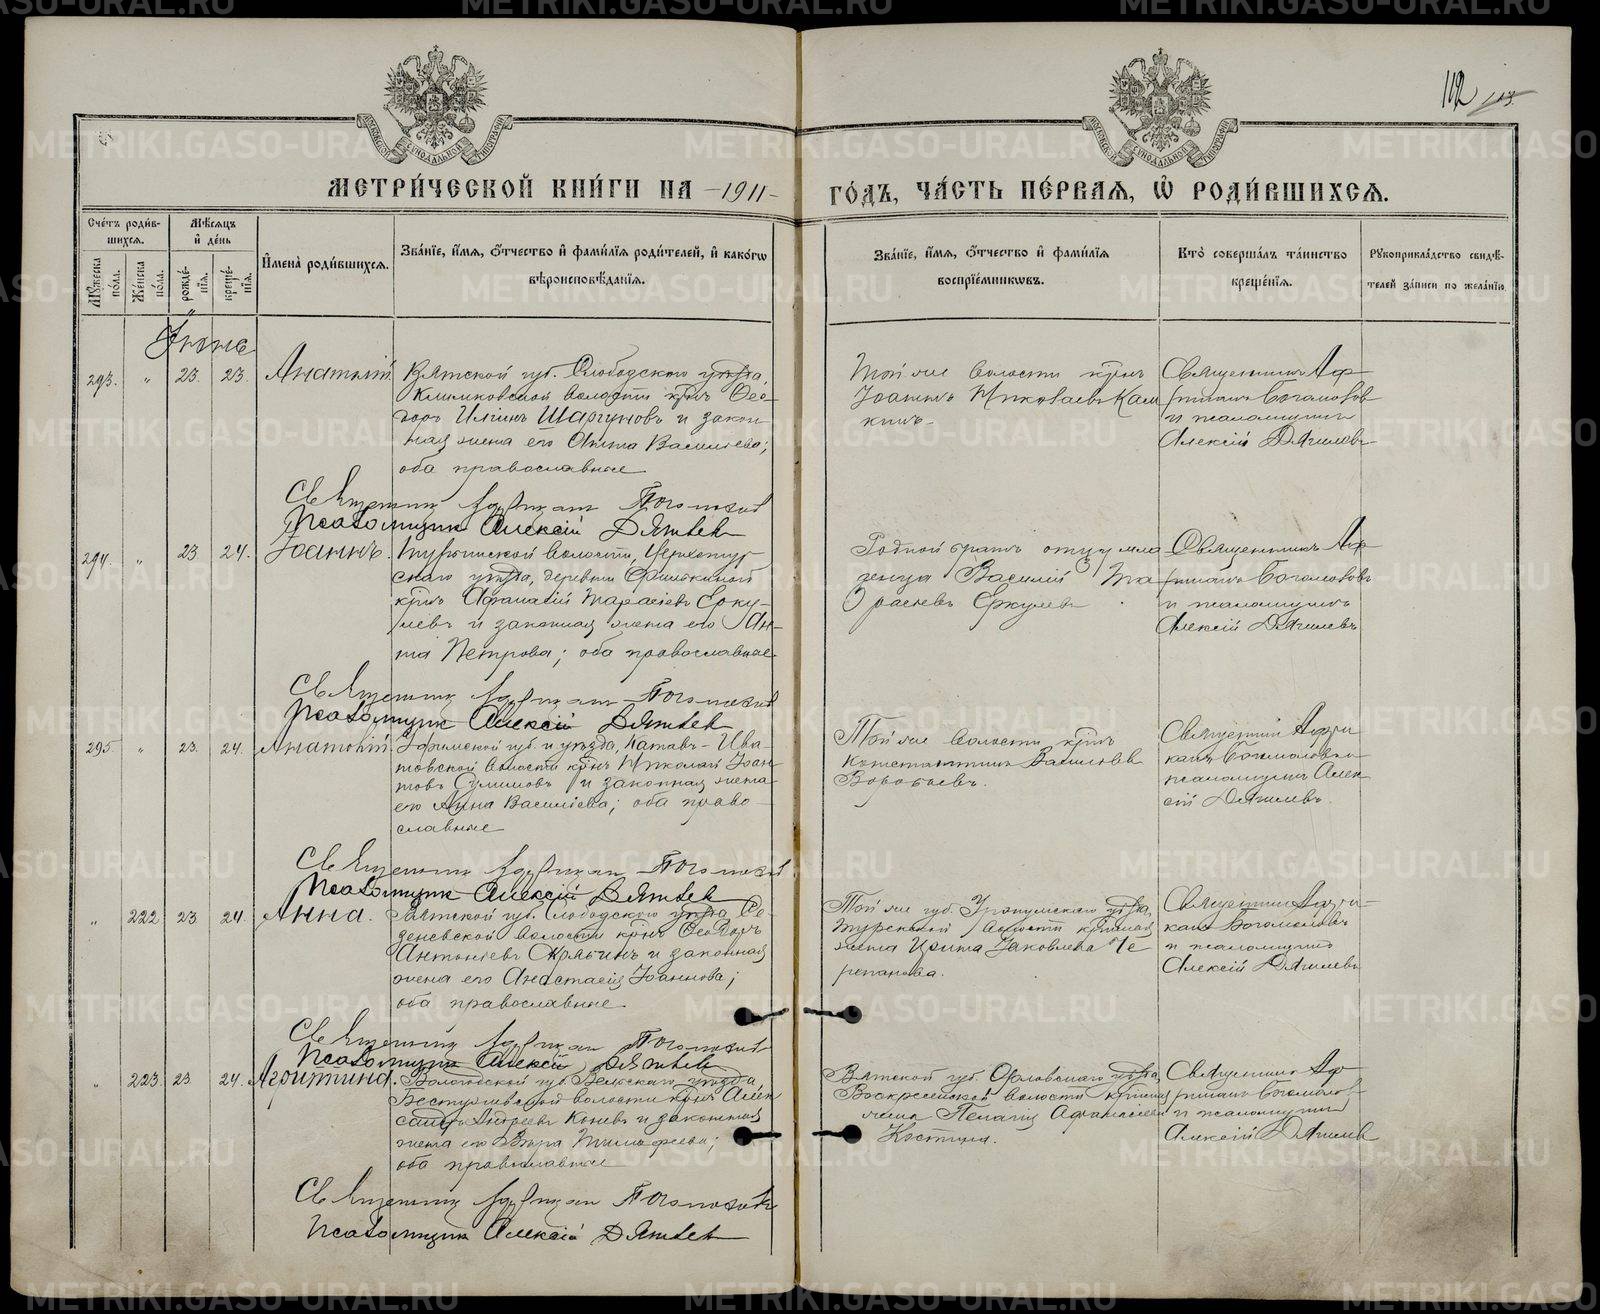 112 113.
МЕТРИ́ЧЕСКОЙ КНИ́ГИ НА -1911- ГО́ДЪ, ЧА́СТЬ ПЕ́РВАѦ, Ѡ҆ РОДИ́ВШИХСѦ.
Сче́тъ роди́вшихсѧ.
Мѣ́сѧцъ и҆ де́нь
Мꙋ́жеска по́ла.
Же́нска по́ла.
рожде́нїѧ.
креще́нїѧ.
И҆мена̀ роди́вшихсѧ.
Зва́нїе, и҆́мѧ, ѻ҆́тчество и҆ фами́лїѧ роди́телей, и҆ како́гѡ вѣроисповѣ́данїѧ.
Зва́нїе, и҆́мѧ, ѻ҆́тчество и҆ фами́лїѧ воспрїе́мникѡвъ.
Кто̀ соверша́лъ та́инство креще́нїѧ.
Рꙋкоприкла́дство свидѣ́телей за́писи по жела́нїю.
Іюнь
293. " 23. 23. Анатолій.
Вятской губ. Слободского уѣзда,
Климковской волости кр‍нъ Ѳео-
доръ Иліинъ Шаргуновъ и закон-
ная жена его Анна Васильева;
оба православные
Той же волости кр‍нъ
Іоаннъ Николаевъ
Священникъ Аф
риканъ Богомоловъ
и псаломщикъ
Алексій Дягилевъ
Священникъ Африкан Богомолов
Псаломщик Алексій Дягилев
294. " 23. 24. Іоаннъ.
Туринской волости, Верхотур-
скаго уѣзда, деревни
кр‍нъ Афанасій Тарасіевъ Ерку-
левъ и законная жена его Ан-
на Петрова; оба православные
Родной братъ отцу мла
денца Василій Та
расіевъ Еркулевъ
Священникъ Аф
риканъ Богомоловъ
и псаломщикъ
Алексій Дягилевъ
Священник Африкан Богомолов
Псаломщик Алексій Дягилев
295. " 23. 24. Анатолій.
Уфимской губ. и уѣзда, Катавъ-Ива-
новской волости кр‍нъ Николай Іоан-
новъ Сулимовъ и законная жена
его Анна Васильева; оба право-
славные
Той же волости кр‍нъ
Константинъ Васильевъ
Воробьевъ.
Священникъ Афри
канъ Богомоловъ и
псаломщикъ Алек
сій Дягилевъ.
Священник Африкан Богомолов
Псаломщик Алексій Дягилев
" 222 23 24. Анна.
Вятской губ. Слободского уѣзда,
волости кр‍нъ Ѳеодоръ
Антоніевъ и законная
жена его Анастасія Іоаннова;
оба православные
Той же губ. Уржумскаго уѣзда,
Турекской волости
жена Ирина Іаковлева Че
репанова.
Священникъ Афри-
канъ Богомоловъ
и псаломщикъ
Алексій Дягилевъ
Священник Африкан Богомолов
Псаломщик Алексій Дягилев
" 223. 23. 24. Агриппина.
Вологодской губ. Вельскаго уѣзда,
Бестужевской волости кр‍нъ Алек
сандръ Андреевъ и законная
жена его Вѣра Тимофеева;
оба православные
Вятской губ. Орловскаго уѣзда,
Воскресенской волости
жена Пелагія Афанасіева
Костина.
Священникъ Аф
риканъ Богомолов
и псаломщикъ
Алексій Дягилев
Священник Африкан Богомолов
Псаломщик Алексій Дягилев
METRIKI.GASO-URAL.RU